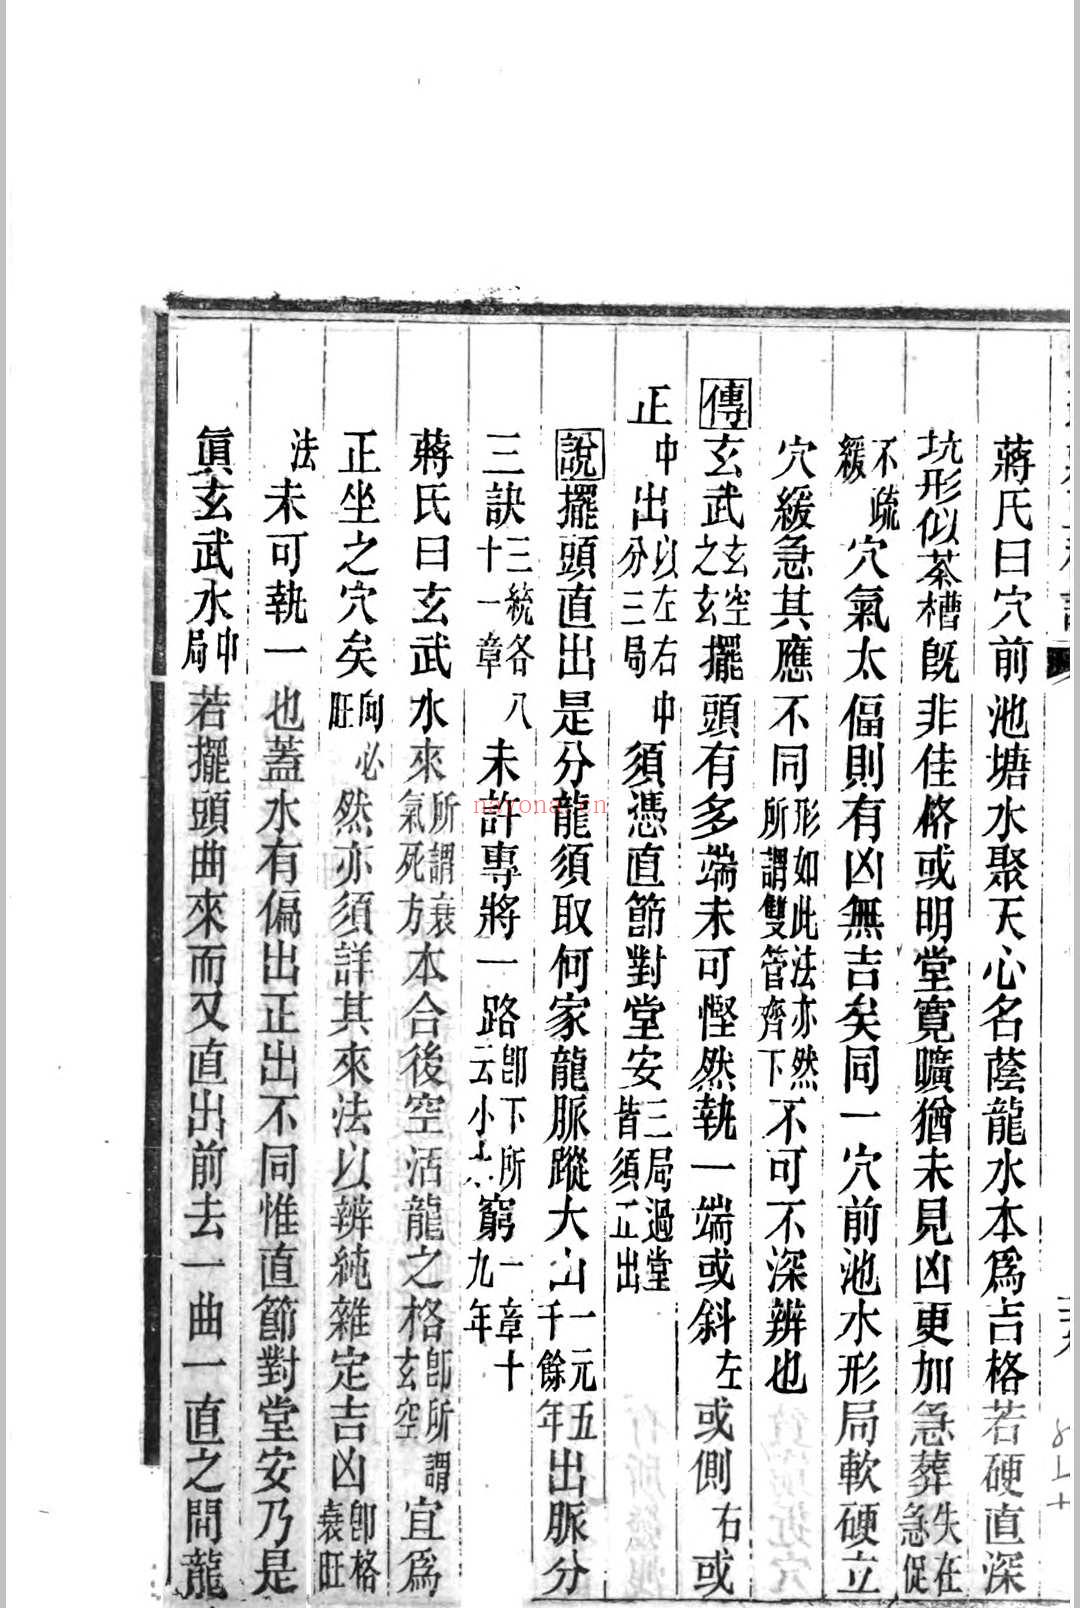 蔣氏曰穴前池塘水聚天心名蔭龍水本爲吉格若硬直深
坑形似茶槽旣非佳格或明堂寛曠猶未見凶更加急葬失在急促
不疏緩穴氣太偪則有凶無吉矣同一穴前池水形局軟硬立
穴緩急其應不同形如此法亦然所謂雙管齊下不可不深辨也
傳玄武玄空之玄擺頭有多端未可慳然執一端或斜左或側右或
正中出以左右分三局中須憑直節對堂安三局過堂皆須正出
說擺頭直出是分龍須取何家龍脈蹤大山一元五千餘年出脈分
三訣三統各八十一章未許專將一路卽下所云小窮一章十九年
蔣氏曰玄武水來所謂衰氣死方本合後空活龍之格卽所謂玄空宜爲
正坐之穴矣向旺必然亦須詳其來法以辨純雜定吉凶卽格衰旺
法未可執一也蓋水有偏出正出不同惟直節對堂安乃是
眞玄武水中局若擺頭曲來而又直出前去一曲一直之間龍
nayona.cn